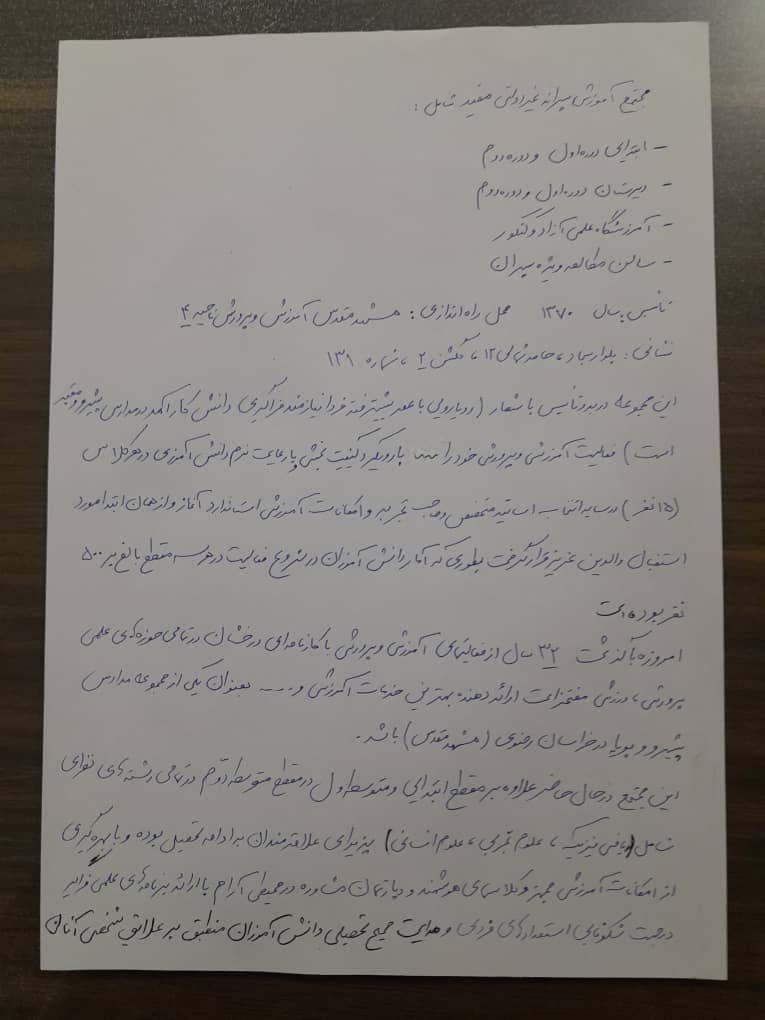 مجتمع آموزشی پسرانه غیردولتی مفید شامل :
- ابتدایی دوره اول و دوره دوم
- دبیرستان دوره اول و دوره دوم
- آموزشگاه علمی آزاد و کنکور
- سالن مطالعه ویژه پسران
تأسیس سال ۱۳۷۰ محل راه اندازی : مشهد مقدس آموزش و پرورش ناحیه ۴
نشانی : بلوار سجاد ، حامد شمالی ۱۲ ، گلشن ۲ ، شماره ۱۳۱
این مجموعه در بدو تأسیس با شعار ( رویارویی با عصر پیشرفته فردا نیازمند فراگیری دانش کارآمد در مدارس پیشرو و مفید
است ) فعالیت آموزشی و پرورشی خود را با رویکرد کیفیت بخشی و با رعایت نرم دانش آموزی در هر کلاس
( ۱۵ نفر ) در سایه انتخاب اساتید متخصص و صاحب تجربه و امکانات آموزشی استاندارد آغاز و از همان ابتدا مورد
استقبال والدین عزیز قرار گرفت بطوری که آمار دانش آموزان در شروع فعالیت در هر سه مقطع بالغ بر ۵۰۰
نفر بوده است
امروزه با گذشت ۳۲ سال از فعالیتهای آموزشی و پرورشی با کارنامه ای درخشان در تمامی حوزه های علمی
پرورشی ، ورزشی مفتخر است ارائه دهنده بهترین خدمات آموزشی و .... بعنوان یکی از مجموعه مدارس
پیشرو و پویا در خراسان رضوی ( مشهد مقدس ) باشد .
این مجتمع در حال حاضر علاوه بر مقطع ابتدایی و متوسطه اول در مقطع متوسطه دوّم در تمامی رشته های نظری
شامل ( ریاضی فیزیک ، علوم تجربی ، علوم انسانی ) پذیرای علاقمندان به ادامه تحصیل بوده و با بهره گیری
از امکانات آموزشی مجهز و کلاسهای هوشمند و دپارتمان مشاوره در محیطی آرام با ارائه برنامه های علمی فراگیر
در جهت شکوفایی استعدادهای فردی و هدایت صحیح تحصیلی دانش آموزان منطبق بر علایق شخصی آنان